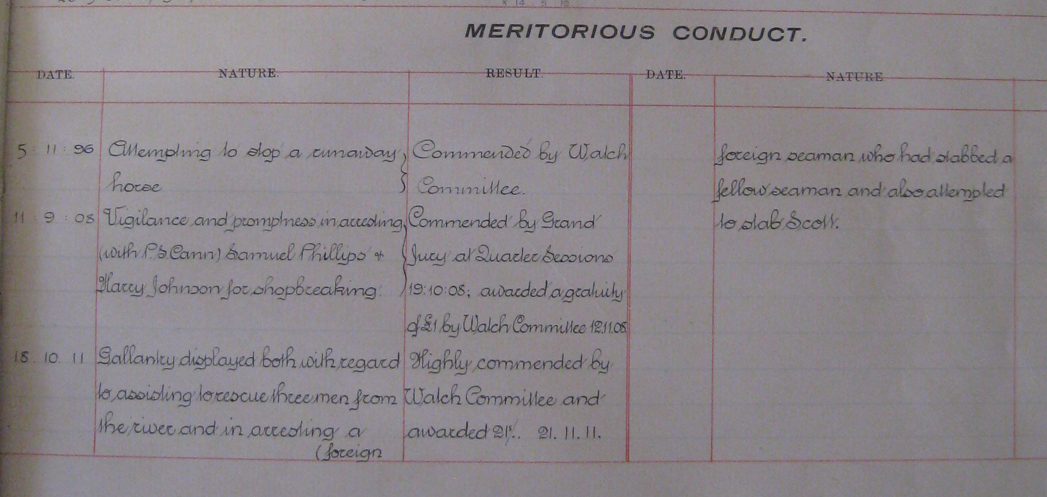 MERITORIOUS CONDUCT.
DATE. NATURE. RESULT. DATE. NATURE
5 : 11 : 96 Attempting to stop a runaway Commended by Watch
horse Committee.
11 : 9 : 08 Vigilance and promptness in arresting Commended by Grand
(with P.S Cann) Samuel Phillips + Jury at Quarter Sessions
Harry Johnson for shopbreaking 19:10:08; awarded a gratuity
of £1 by Watch Committee 12.11.08
18. 10. 11 Gallantry displayed both with regard Highly commended by
to assisting to rescue three men from Watch Committee and
the river and in arresting a awarded 21. 11. 11.
(foreign
foreign seaman who had stabbed a
fellow seaman and also attempted
to stab Scott.